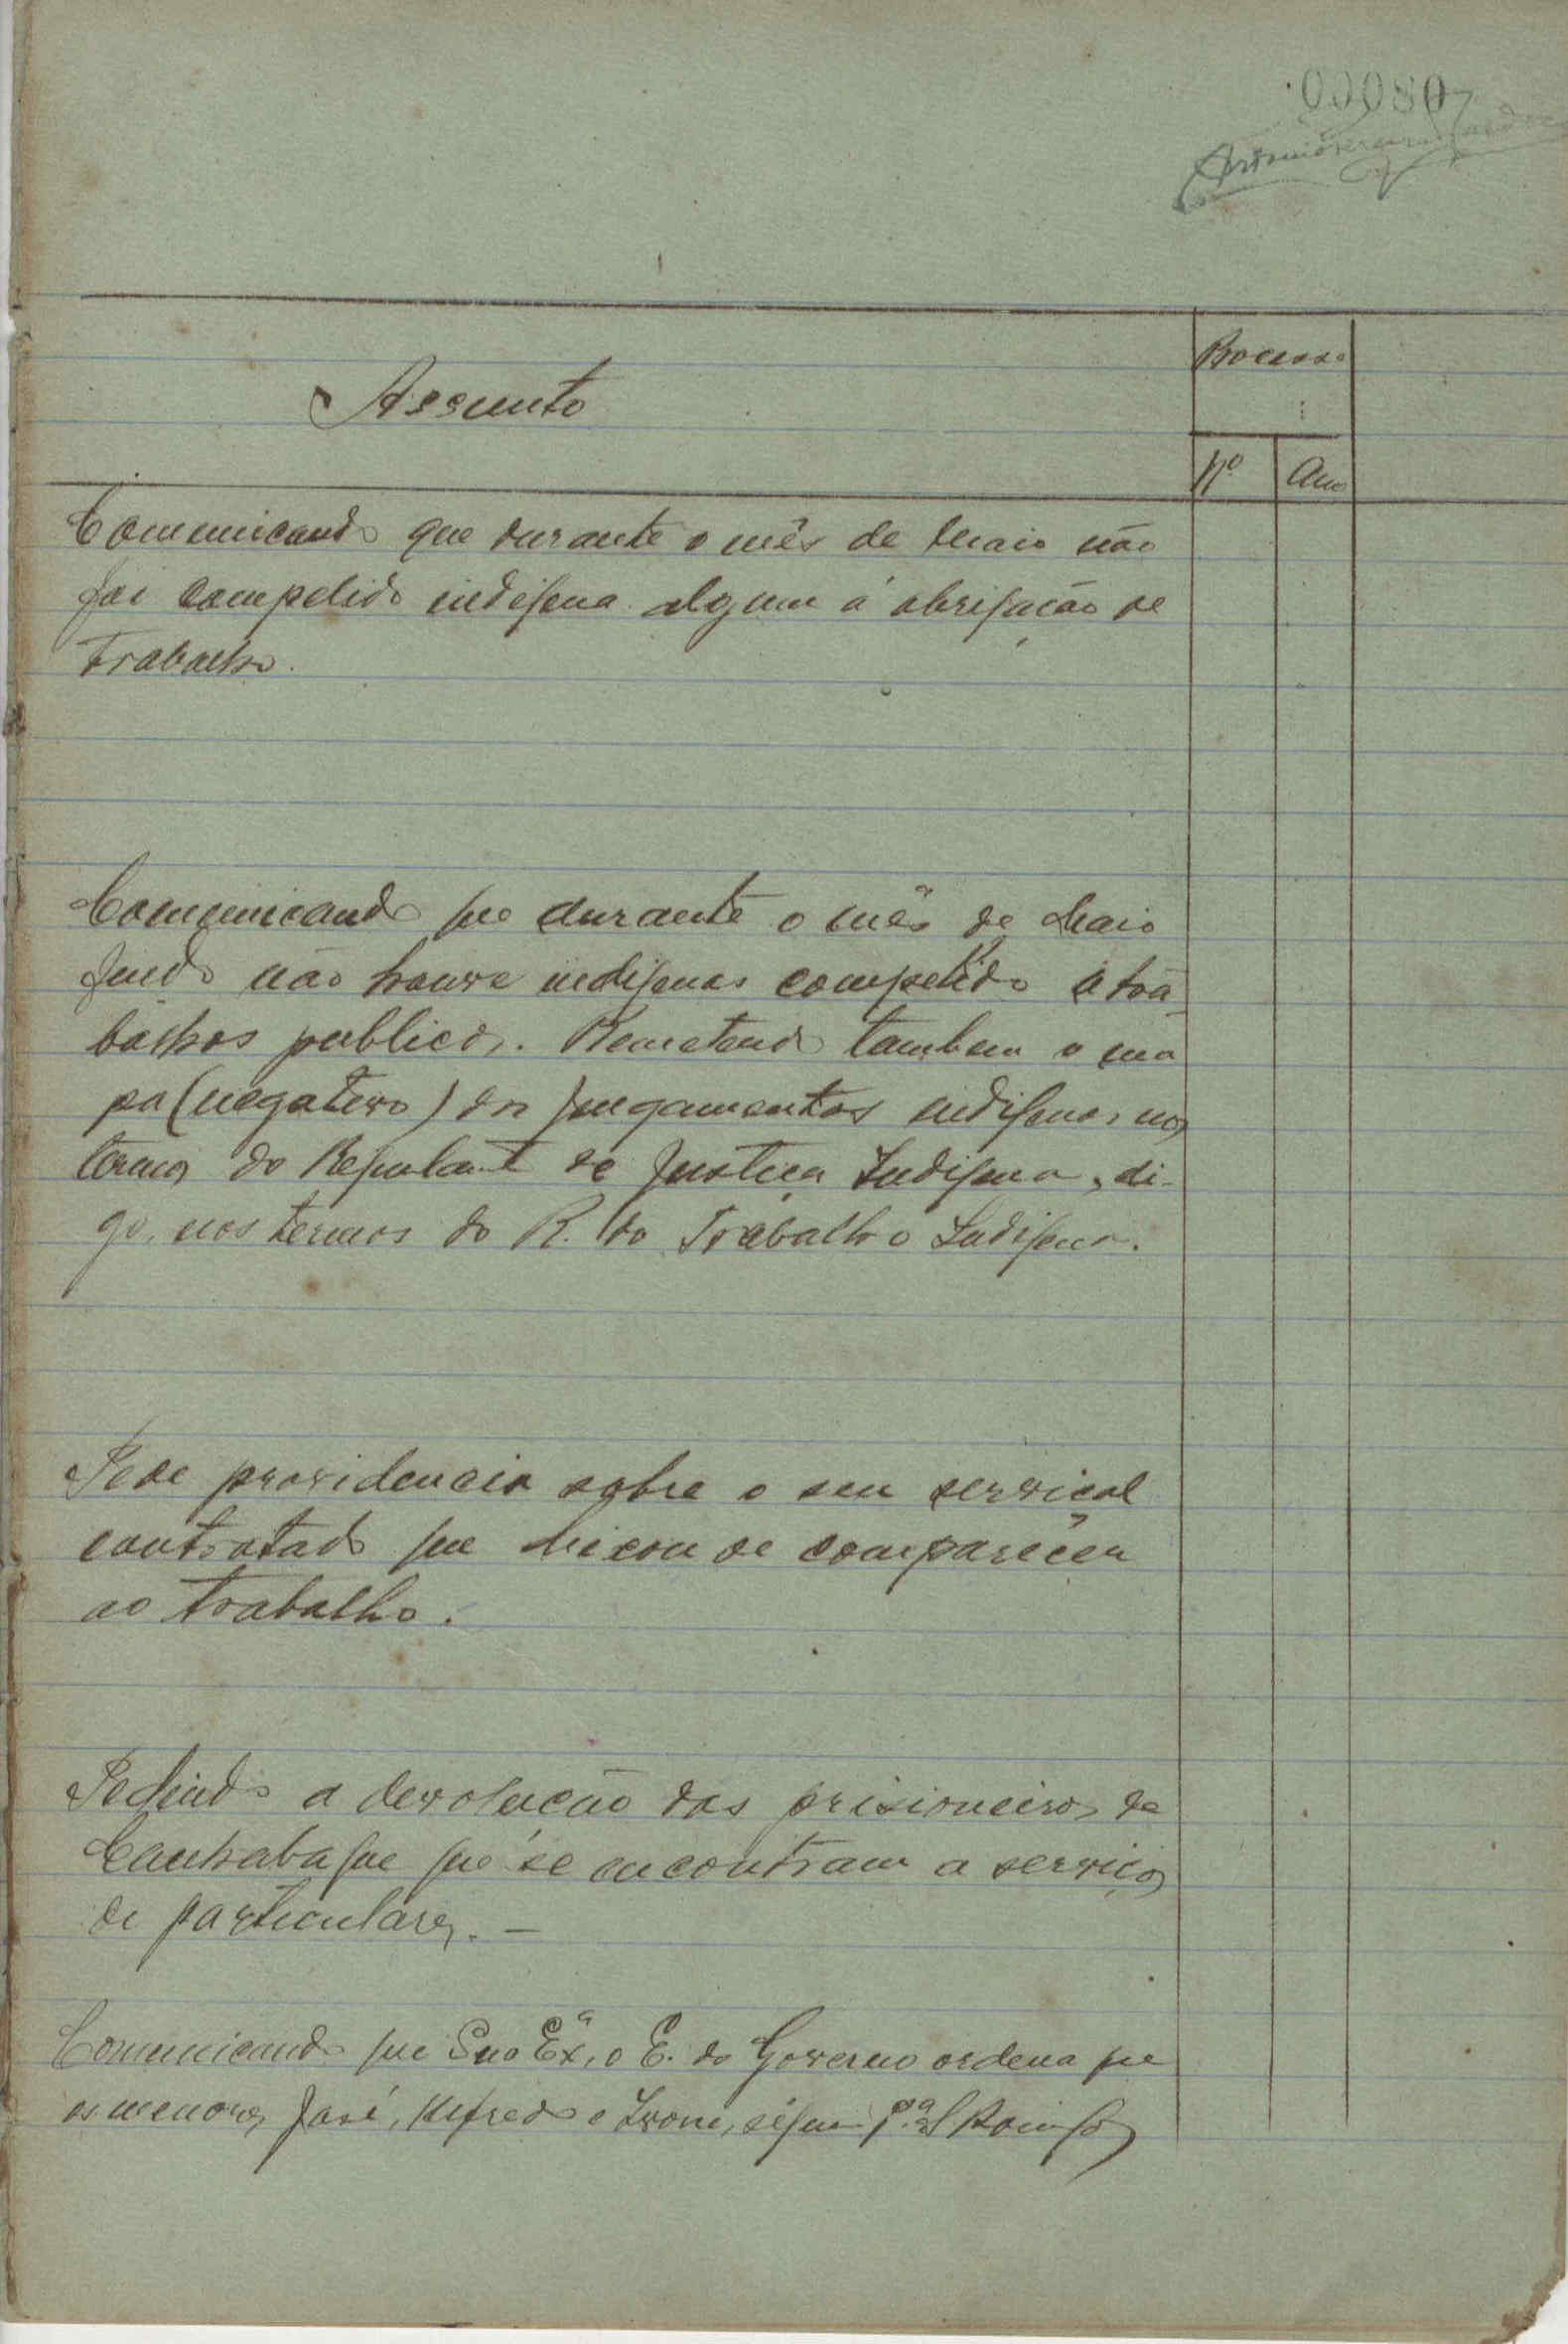 00080
Assunto
Processo
Nº
Ano
Comunicando que durante o mês de Maio não
foi compelido indigena algum á obrigação de
trabalho.
Comunicando que durante o mês de Maio
findo não houve indigenas compelido a tra-
balhos publicos. Remetendo tambem o ma
pa (negativo) dos julgamentos indigenas nos
termos do Regulamt de Justiça Indigena, di-
go, nos termos do R. do Trabalho Indigena.
Pede providencia sobre o seu serviçal
contratado que deixou de comparecer
ao trabalho.
Pedindo a devolução dos prisioneiros de
Canhabaque que se encontram a serviço
de particulares. —
Comunicando que Sua Exª, o E. do Governo ordena que
os menores José, Alfredo e Ivone, sigam pª S.